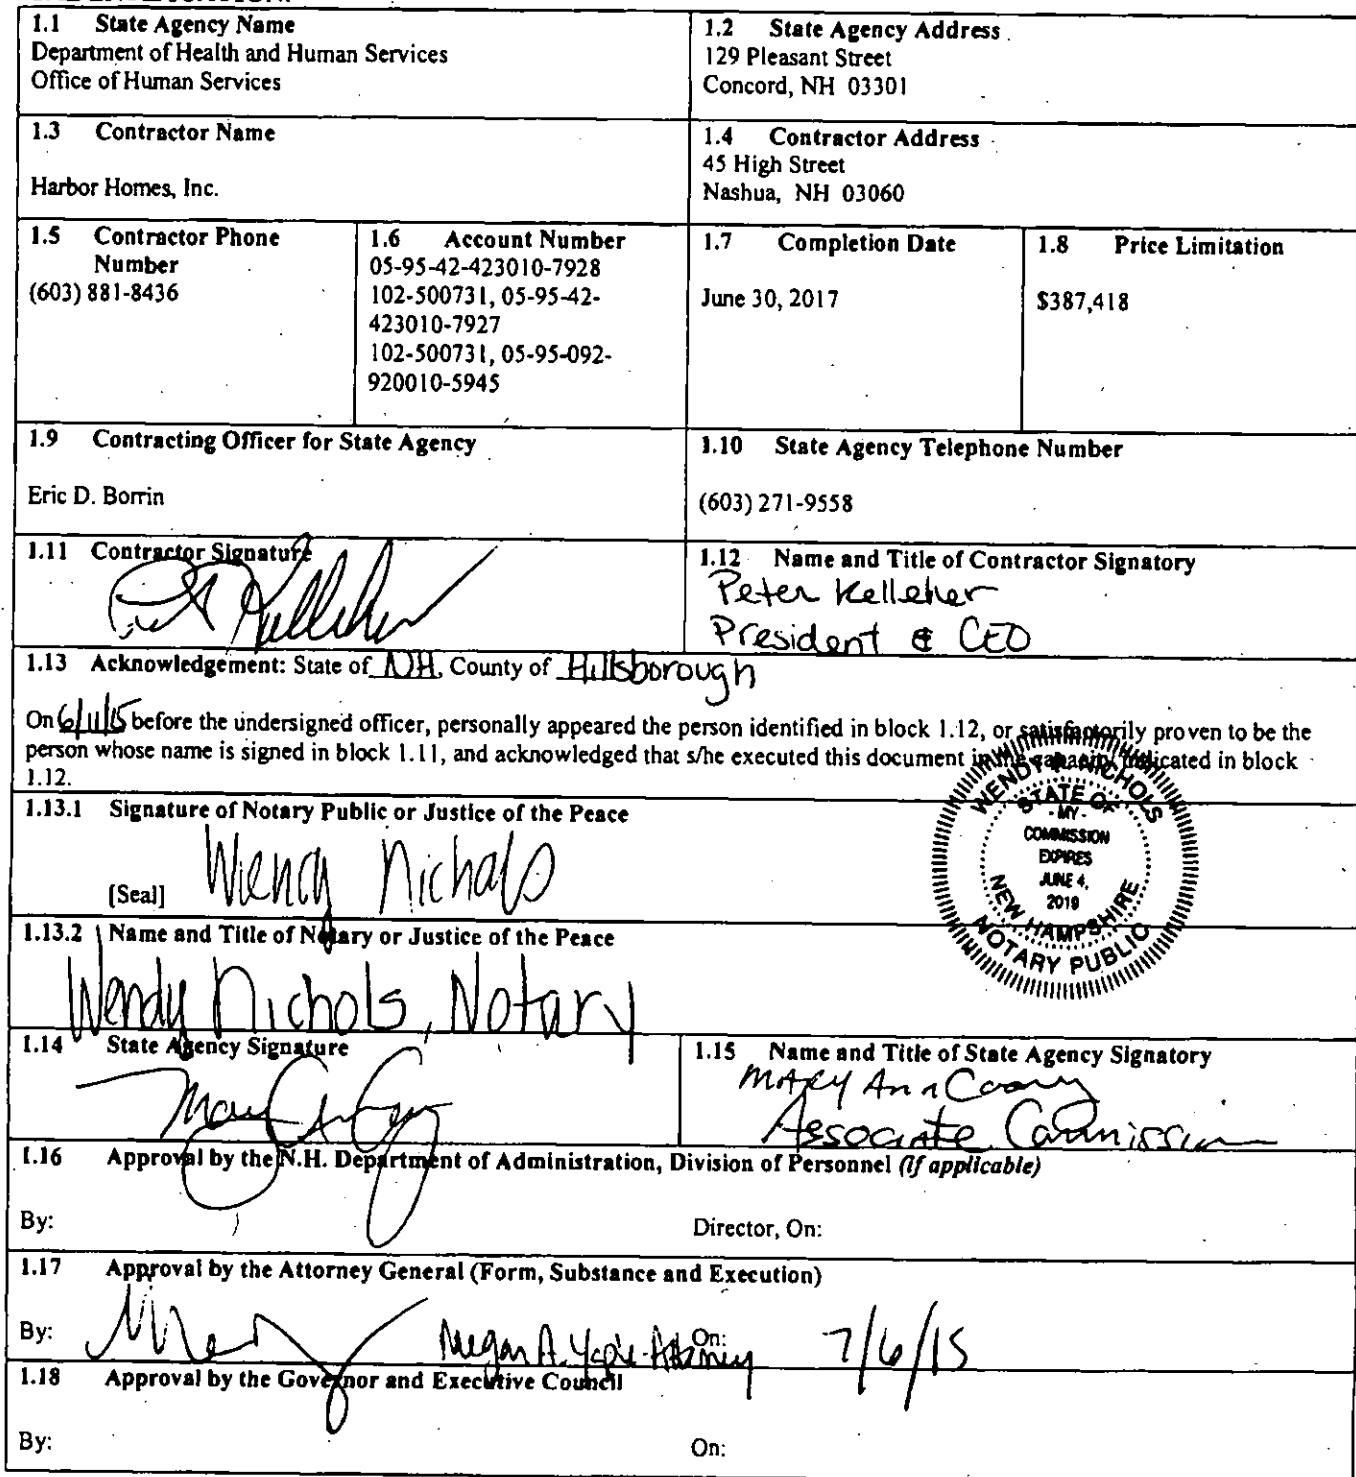 1.1 State Agency Name
Department of Health and Human Services
Office of Human Services
1.2 State Agency Address
129 Pleasant Street
Concord, NH 03301
1.3 Contractor Name
Harbor Homes, Inc.
1.4 Contractor Address
45 High Street
Nashua, NH 03060
1.5 Contractor Phone
Number
(603) 881-8436
1.6 Account Number
05-95-42-423010-7928
102-500731, 05-95-42-
423010-7927
102-500731, 05-95-092-
920010-5945
1.7 Completion Date
June 30, 2017
1.8 Price Limitation
$387,418
1.9 Contracting Officer for State Agency
Eric D. Borrin
1.10 State Agency Telephone Number
(603) 271-9558
1.11 Contractor Signature
1.12 Name and Title of Contractor Signatory
Peter Kelleher
President & CEO
1.13 Acknowledgement: State of NH, County of Hillsborough
On 6/11/15 before the undersigned officer, personally appeared the person identified in block 1.12, or satisfactorily proven to be the
person whose name is signed in block 1.11, and acknowledged that s/he executed this document in the capacity indicated in block
1.12.
1.13.1 Signature of Notary Public or Justice of the Peace
Wendy Nichols
[Seal]
WENDY NICHOLS
STATE OF
- MY -
COMMISSION
EXPIRES
JUNE 4,
2019
NEW HAMPSHIRE
NOTARY PUBLIC
1.13.2 Name and Title of Notary or Justice of the Peace
Wendy Nichols, Notary
1.14 State Agency Signature
1.15 Name and Title of State Agency Signatory
Mary Ann Cooney
Associate Commissioner
1.16 Approval by the N.H. Department of Administration, Division of Personnel (if applicable)
By: Director, On:
1.17 Approval by the Attorney General (Form, Substance and Execution)
By: Megan A. - Attorney On: 7/6/15
1.18 Approval by the Governor and Executive Council
By: On: